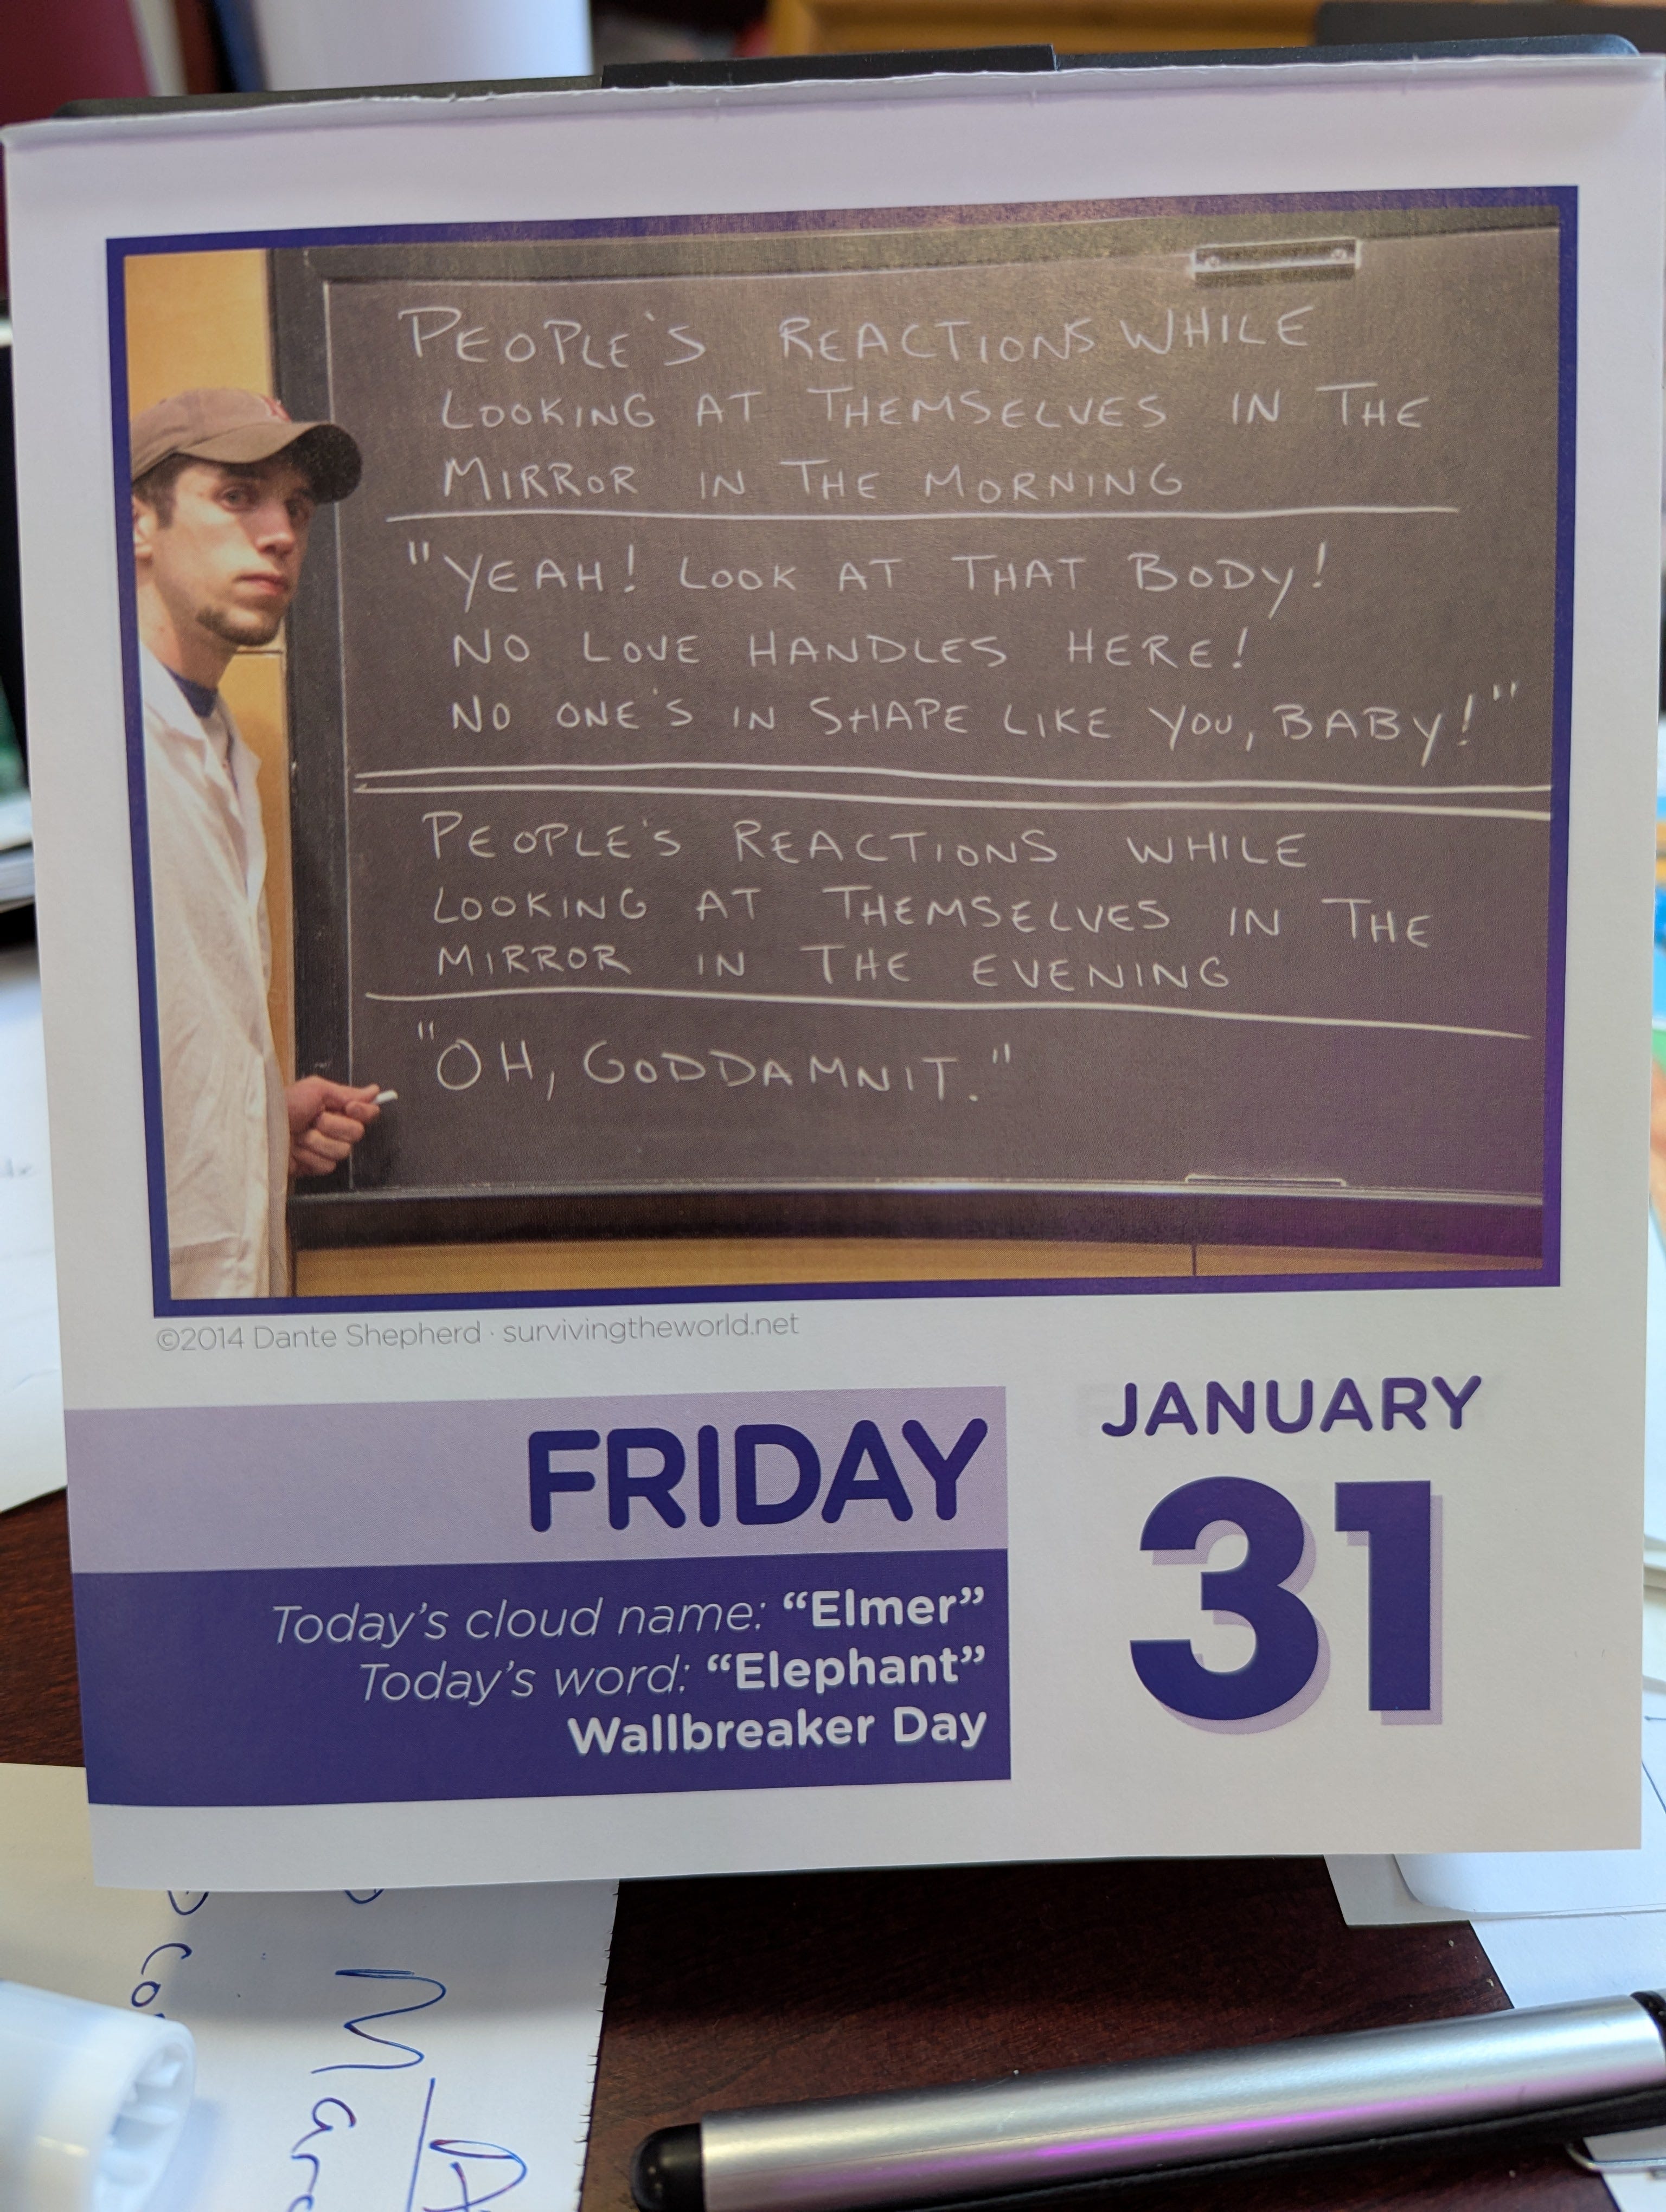 PEOPLE'S REACTIONS WHILE
LOOKING AT THEMSELVES IN THE
MIRROR IN THE MORNING
"YEAH! LOOK AT THAT BODY!
NO LOVE HANDLES HERE!
NO ONE'S IN SHAPE LIKE YOU, BABY!"
PEOPLE'S REACTIONS WHILE
LOOKING AT THEMSELVES IN THE
MIRROR IN THE EVENING
"OH, GODDAMNIT."
©2014 Dante Shepherd · survivingtheworld.net
FRIDAY
JANUARY
31
Today's cloud name: “Elmer”
Today's word: “Elephant”
Wallbreaker Day